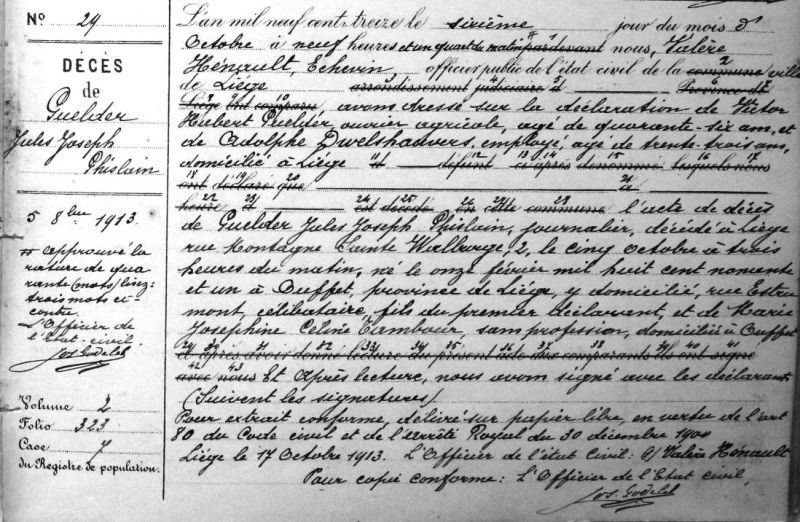 N° 29
DÉCÈS
de
Guelder
Jules Joseph
Ghislain
5 8bre 1913.
Approuvé la
rature de qua
rante (mots) lisez:
trois mots ci-
contre.
L'Officier de
l'Etat civil.
Jos. Godelet
Volume 2
Folio 323
Case 7
du Registre de population.
L'an mil neuf cent treize le sixième jour du mois d'
Octobre à neuf heures et un quart du matin par devant nous, Valère
Hénault, Echevin officier public de l'état civil de la commune ville
de Liège arrondissement judiciaire d Province de
Liège ont comparu, avons dressé sur la déclaration de Victor
Hubert Guelder, ouvrier agricole, agé de quarante-six ans, et
de Adolphe Dwelshauvers, employé, agé de trente-trois ans,
domicilié à Liège d défunt ci-après dénommé lesquels nous
ont déclaré que à
heure d est décédé en cette commune l'acte de décès
de Guelder Jules Joseph Ghislain, journalier, décédé à Liège
rue Montagne Sainte Walburge, 2, le cinq Octobre à trois
heures du matin, né le onze février mil huit cent nonante
et un à Ouffet, province de Liège, y domicilié, rue Estru
mont, célibataire, fils du premier déclarant, et de Marie
Josephine Celine Tambour, sans profession, domiciliée à Ouffet
et après avoir donné lecture du présent acte aux comparants ils ont signé
avec nous Et après lecture, nous avons signé avec les déclarants
(Suivent les signatures).
Pour extrait conforme, délivré sur papier libre, en vertu de l'art
80 du Code civil et de l'arrêté Royal du 30 décembre 1900
Liège le 17 Octobre 1913. L'Officier de l'état Civil: s/ Valère Hénault
Pour copie conforme: L'Officier de l'Etat civil,
Jos. Godelet